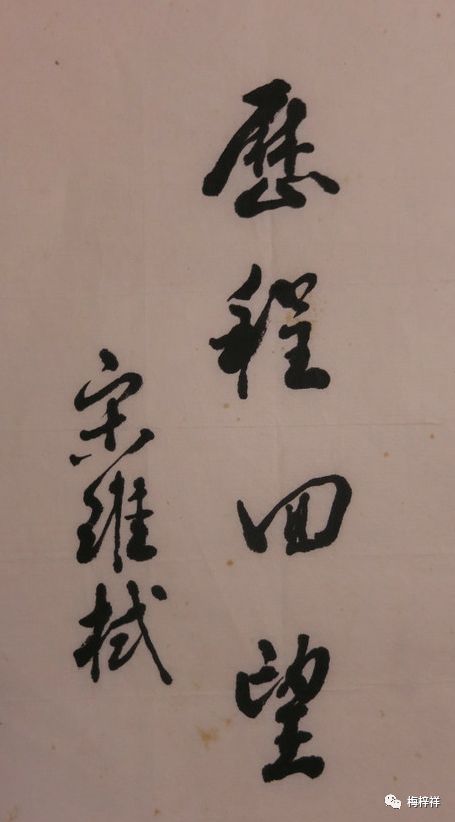 歷程回望
宋維栻
梅梓祥